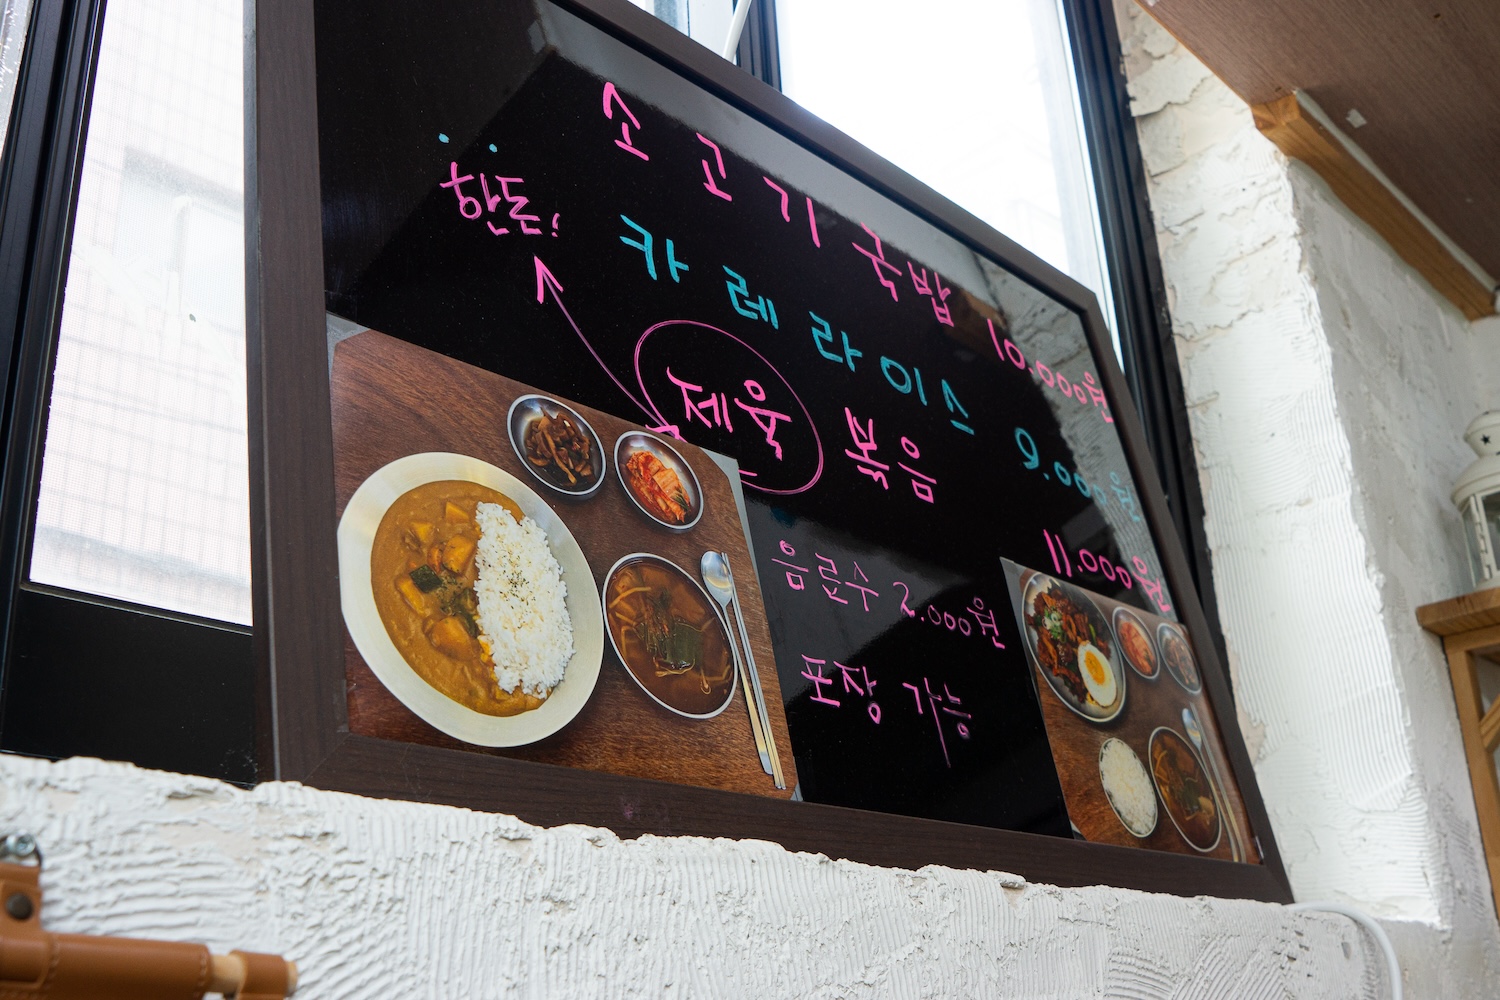 소고기국밥 10.000원
카레라이스 9.000원
제육볶음 11.000원
한돈!
음료수 2.000원
포장 가능